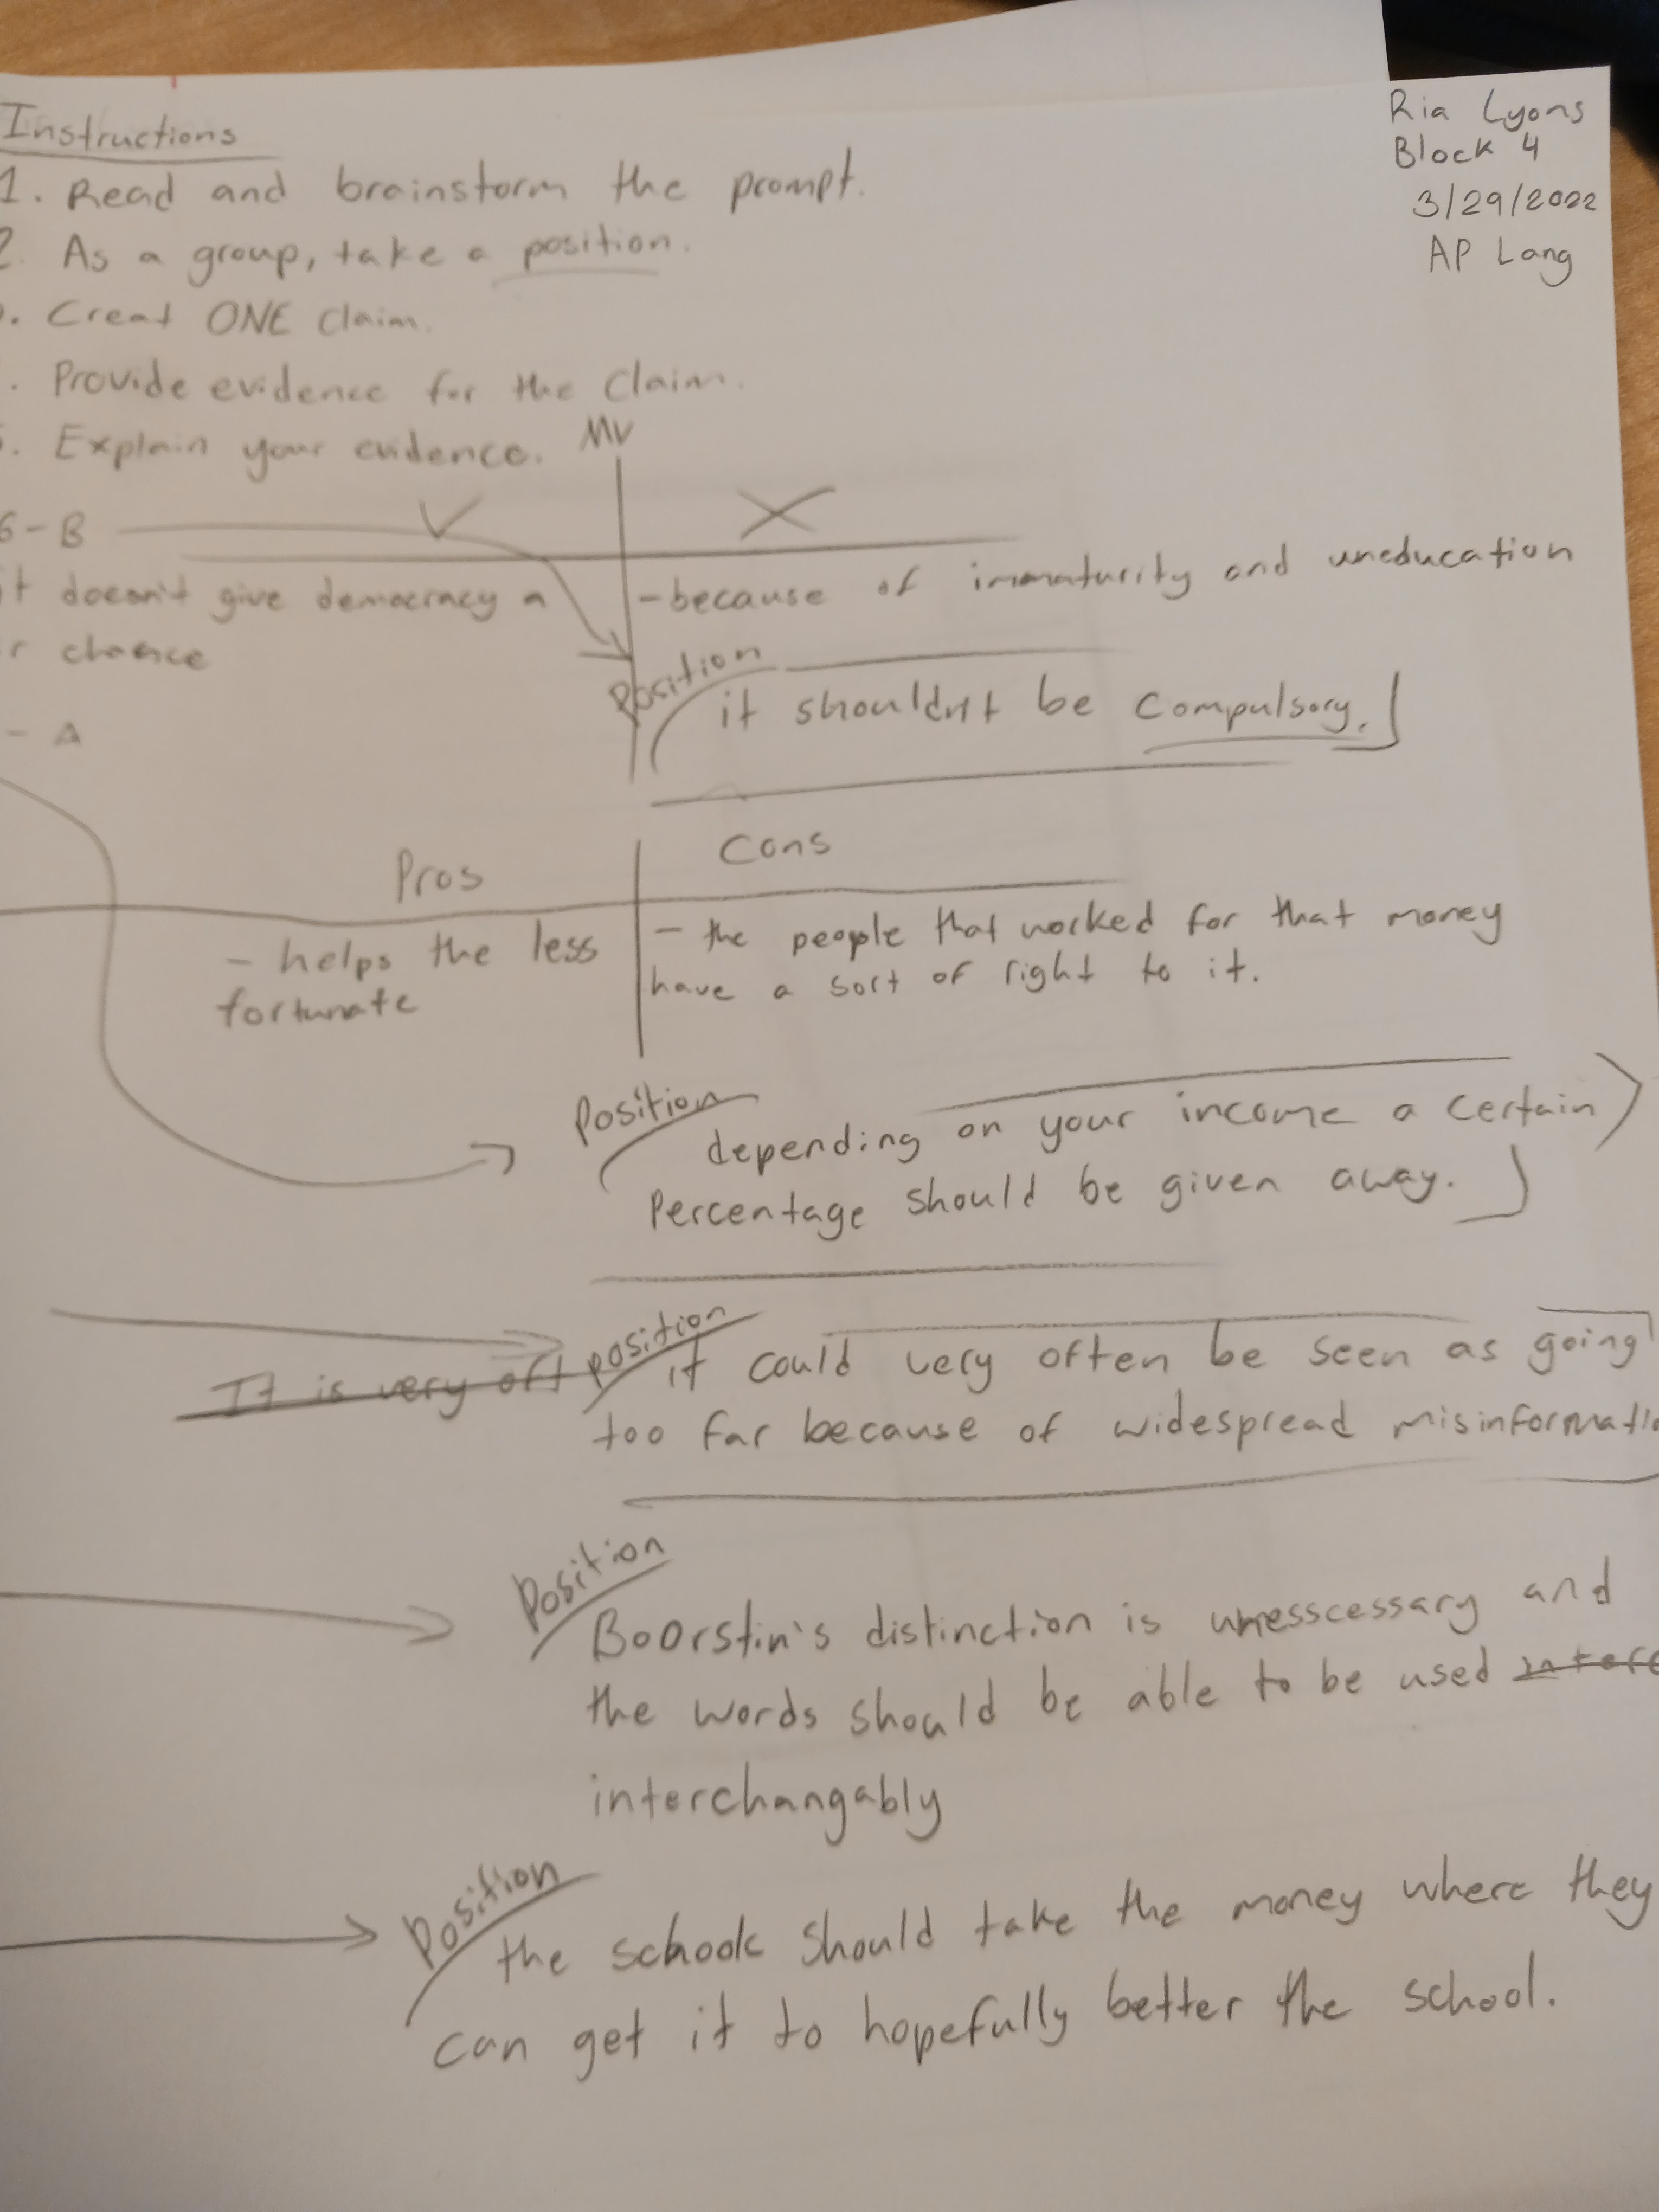 Ria Lyons
Block 4
3/29/2022
AP Lang
Instructions
1. Read and brainstorm the prompt.
2. As a group, take a position.
. Creat ONE claim.
. Provide evidence for the claim.
. Explain your evidence.
MV
- B
it doesn't give democracy a
chance
- because of immaturity and uneducation
Position
it shouldn't be compulsory.
- A
Pros
Cons
- helps the less
fortunate
- the people that worked for that money
have a sort of right to it.
Position
depending on your income a certain
Percentage should be given away.
It is very oft
position
it could very often be seen as going
too far because of widespread misinformatio
Position
Boorstin's distinction is unnesscessary and
the words should be able to be used
interchangably
Position
the school should take the money where they
can get it to hopefully better the school.